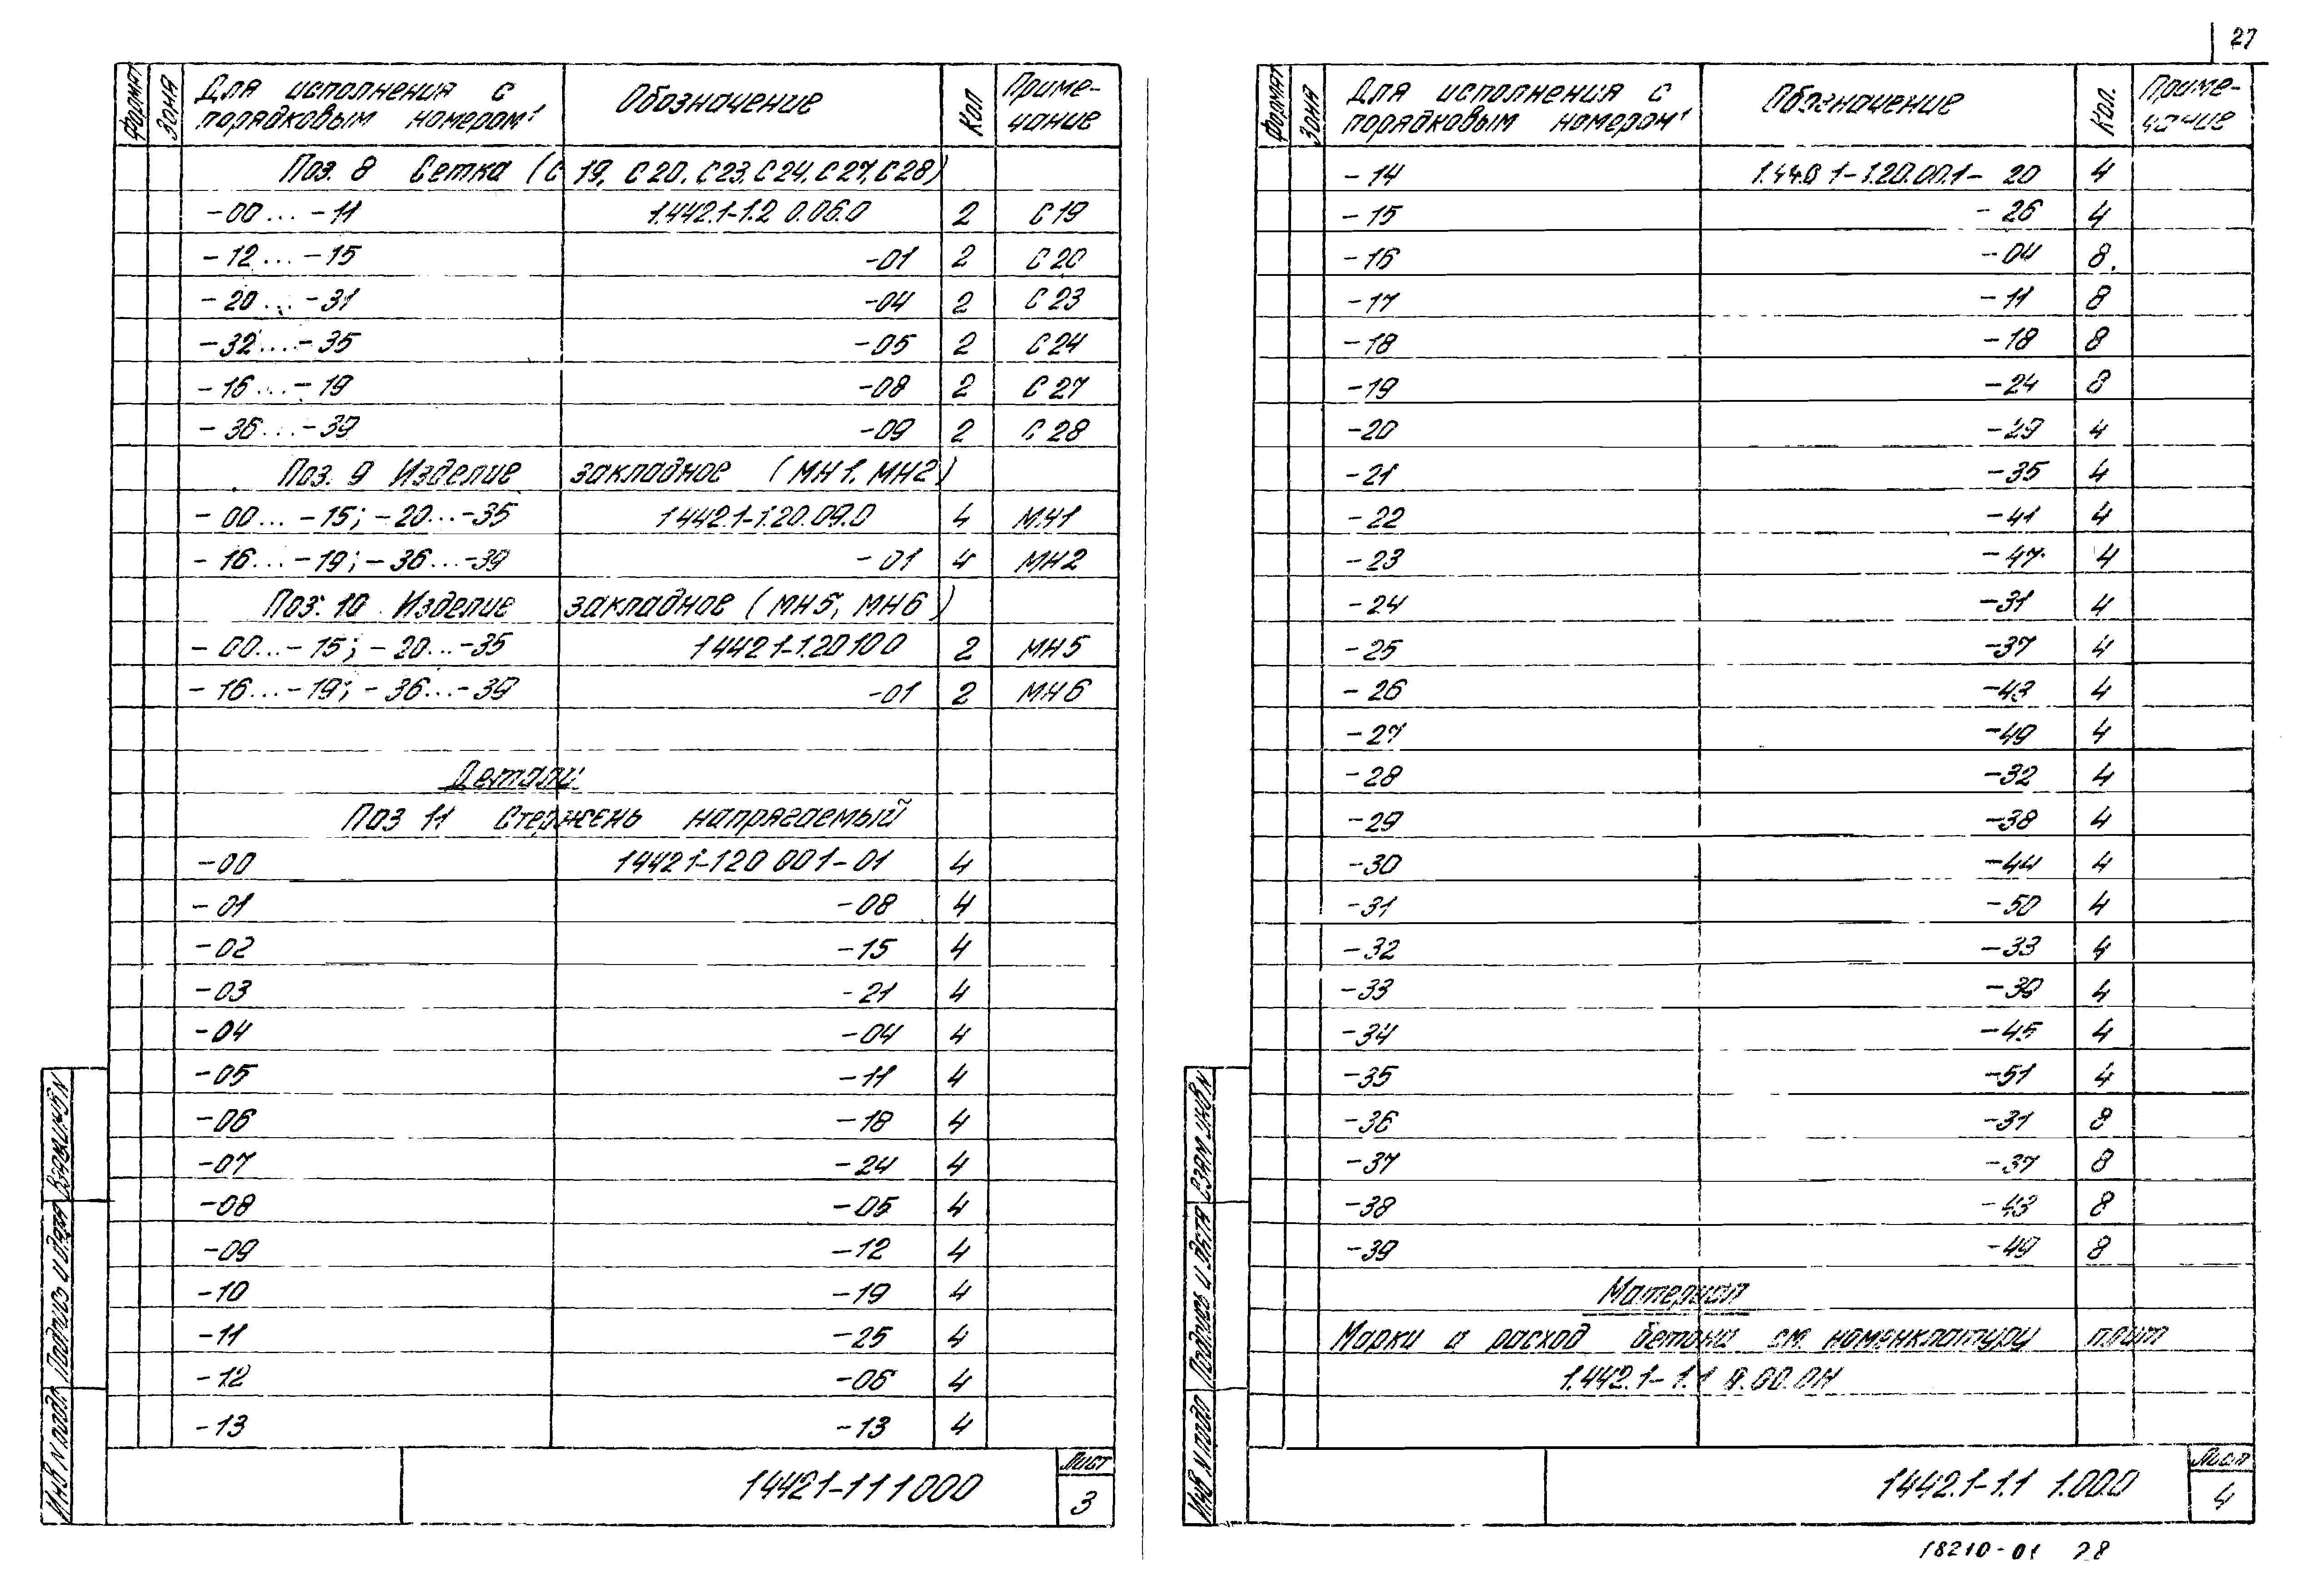 27
Формат Зона Для исполнения с порядковым номером¹ Обозначение Кол Приме-чание
Поз. 8 Сетка (С 19, С20, С23, С24, С27, С28)
-00...-11 1.442.1-1.2 0.06.0 2 С19
-12...-15 -01 2 С20
-20...-31 -04 2 С23
-32...-35 -05 2 С24
-16...-19 -08 2 С27
-36...-39 -09 2 С28
Поз. 9 Изделие закладное (МН1, МН2)
-00...-15; -20...-35 1442.1-1.20.09.0 4 МН1
-16...-19; -36...-39 -01 4 МН2
Поз. 10 Изделие закладное (МН5, МН6)
-00...-15; -20...-35 1442 1-1.20 10 0 2 МН5
-16...-19; -36...-39 -01 2 МН6
Детали
Поз 11 Стержень напрягаемый
-00 1442 1-120 001-01 4
-01 -08 4
-02 -15 4
-03 -21 4
-04 -04 4
-05 -11 4
-06 -18 4
-07 -24 4
-08 -05 4
-09 -12 4
-10 -19 4
-11 -25 4
-12 -06 4
-13 -13 4
Инв N подл. Подпись и дата Взам инв N
14421-111000
Лист
3
Формат Зона Для исполнения с порядковым номером¹ Обозначение Кол. Приме-чание
-14 1.442.1-1.20.00.1- 20 4
-15 -26 4
-16 -04 8
-17 -11 8
-18 -18 8
-19 -24 8
-20 -29 4
-21 -35 4
-22 -41 4
-23 -47 4
-24 -31 4
-25 -37 4
-26 -43 4
-27 -49 4
-28 -32 4
-29 -38 4
-30 -44 4
-31 -50 4
-32 -33 4
-33 -39 4
-34 -45 4
-35 -51 4
-36 -31 8
-37 -37 8
-38 -43 8
-39 -49 8
Материал
Марки и расход бетона см. номенклатуру плит
1.442.1-1.1 0.00.0Н
Инв N подл Подпись и дата Взам инв N
1442.1-1.1 1.00.0
Лист
4
18210-01 28